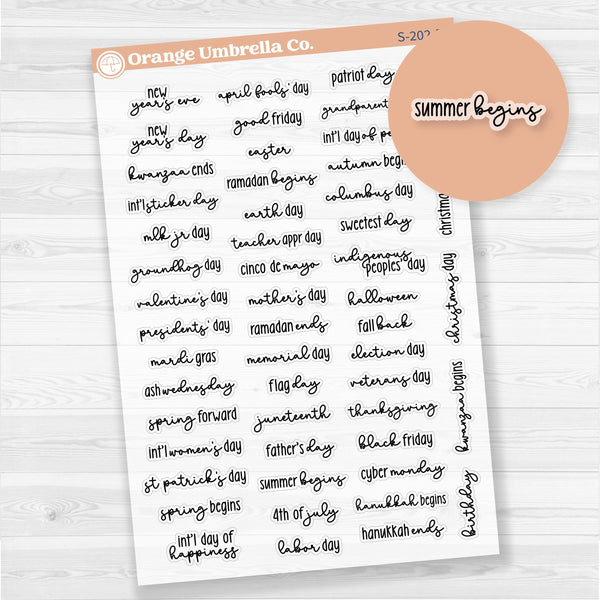 Orange Umbrella Co.
S-202
summer begins
new
year's eve
new
year's day
kwanzaa ends
int'l sticker day
mlk jr day
groundhog day
valentine's day
presidents' day
mardi gras
ash wednesday
spring forward
int'l women's day
st patrick's day
spring begins
int'l day of
happiness
april fools' day
good friday
easter
ramadan begins
earth day
teacher appr day
cinco de mayo
mother's day
ramadan ends
memorial day
flag day
juneteenth
father's day
summer begins
4th of july
labor day
patriot day
grandparent
int'l day of pe
autumn begin
columbus day
sweetest day
indigenous
peoples' day
halloween
fall back
election day
veterans day
thanksgiving
black friday
cyber monday
hanukkah begins
hanukkah ends
christmas
christmas day
kwanzaa begins
birthday